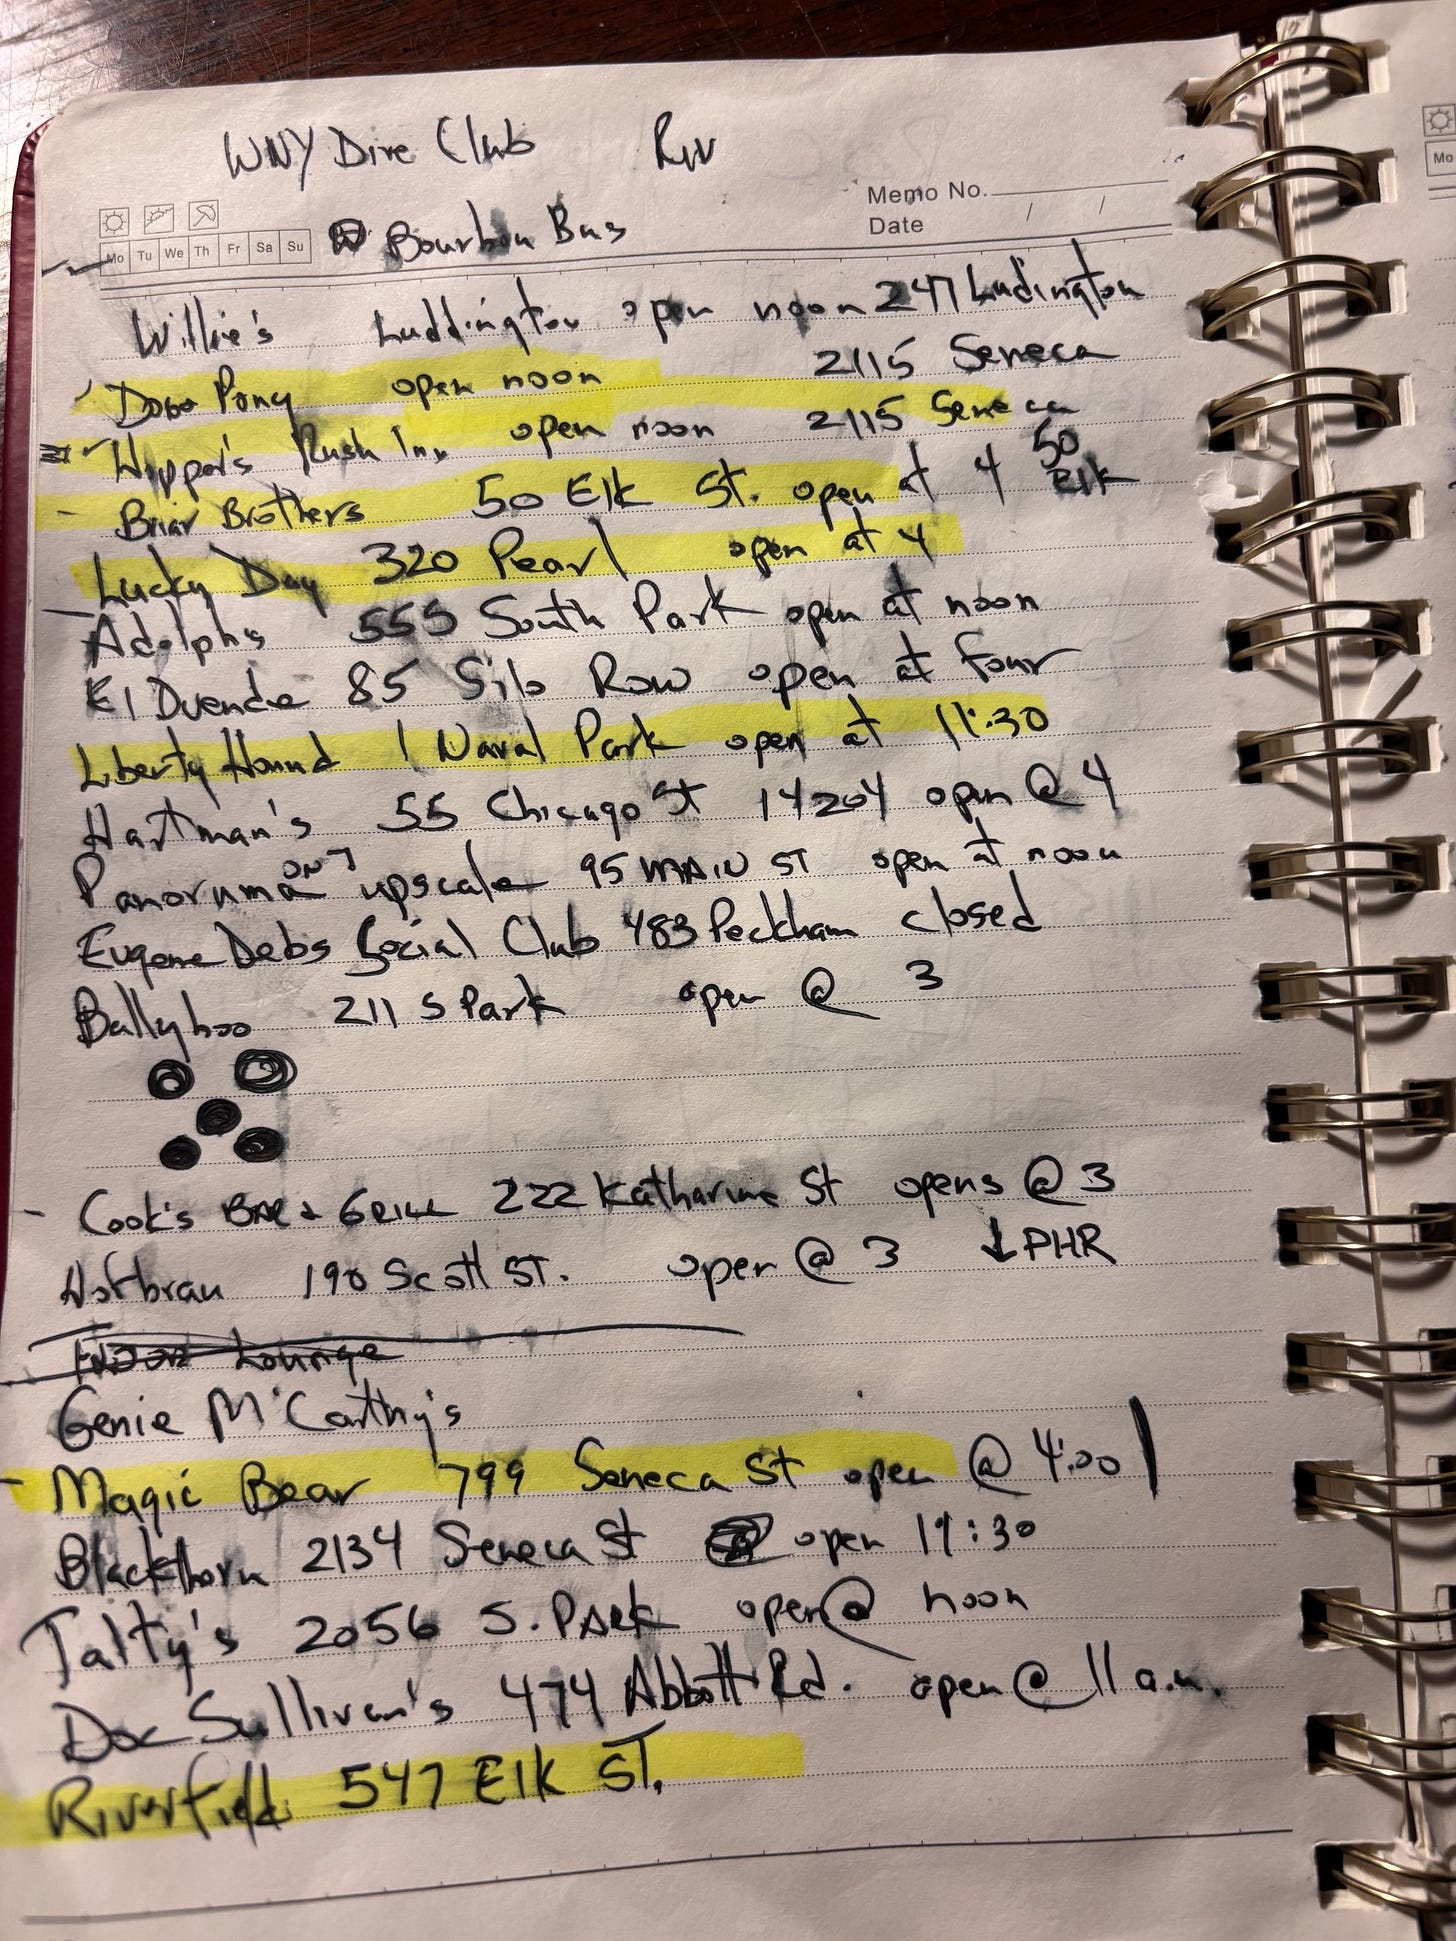 WNY Dive Club
Memo No.
Date / /
Mo Tu We Th Fr Sa Su
Bourbon Bus
Willie's Luddington open noon 247 Ludington
Pony open noon 2115 Seneca
Rush Inn open noon 2115 Seneca
Briar Brothers 50 Elk St. open at 4 50 Elk
Lucky Day 320 Pearl open at 4
Adolphs 555 South Park open at noon
El Duende 85 Silo Row open at four
Liberty Hound 1 Naval Park open at 11:30
Hartman's 55 Chicago St 14204 open @ 4
Panorama on 7 upscale 95 MAIN ST open at noon
Eugene Debs Social Club 483 Peckham closed
Ballyhoo 211 S Park open @ 3
Cook's BAR & GRILL 222 Katharine St opens @ 3
Hofbrau 190 Scott ST. open @ 3 ↓PHR
Lounge
Genie McCarthy's
Magic Bear 799 Seneca St open @ 4:00
Blackthorn 2134 Seneca St open 11:30
Talty's 2056 S. PARK open @ noon
Doc Sullivan's 474 Abbott Rd. open @ 11 a.m.
Riverfield 547 Elk ST.
Mo